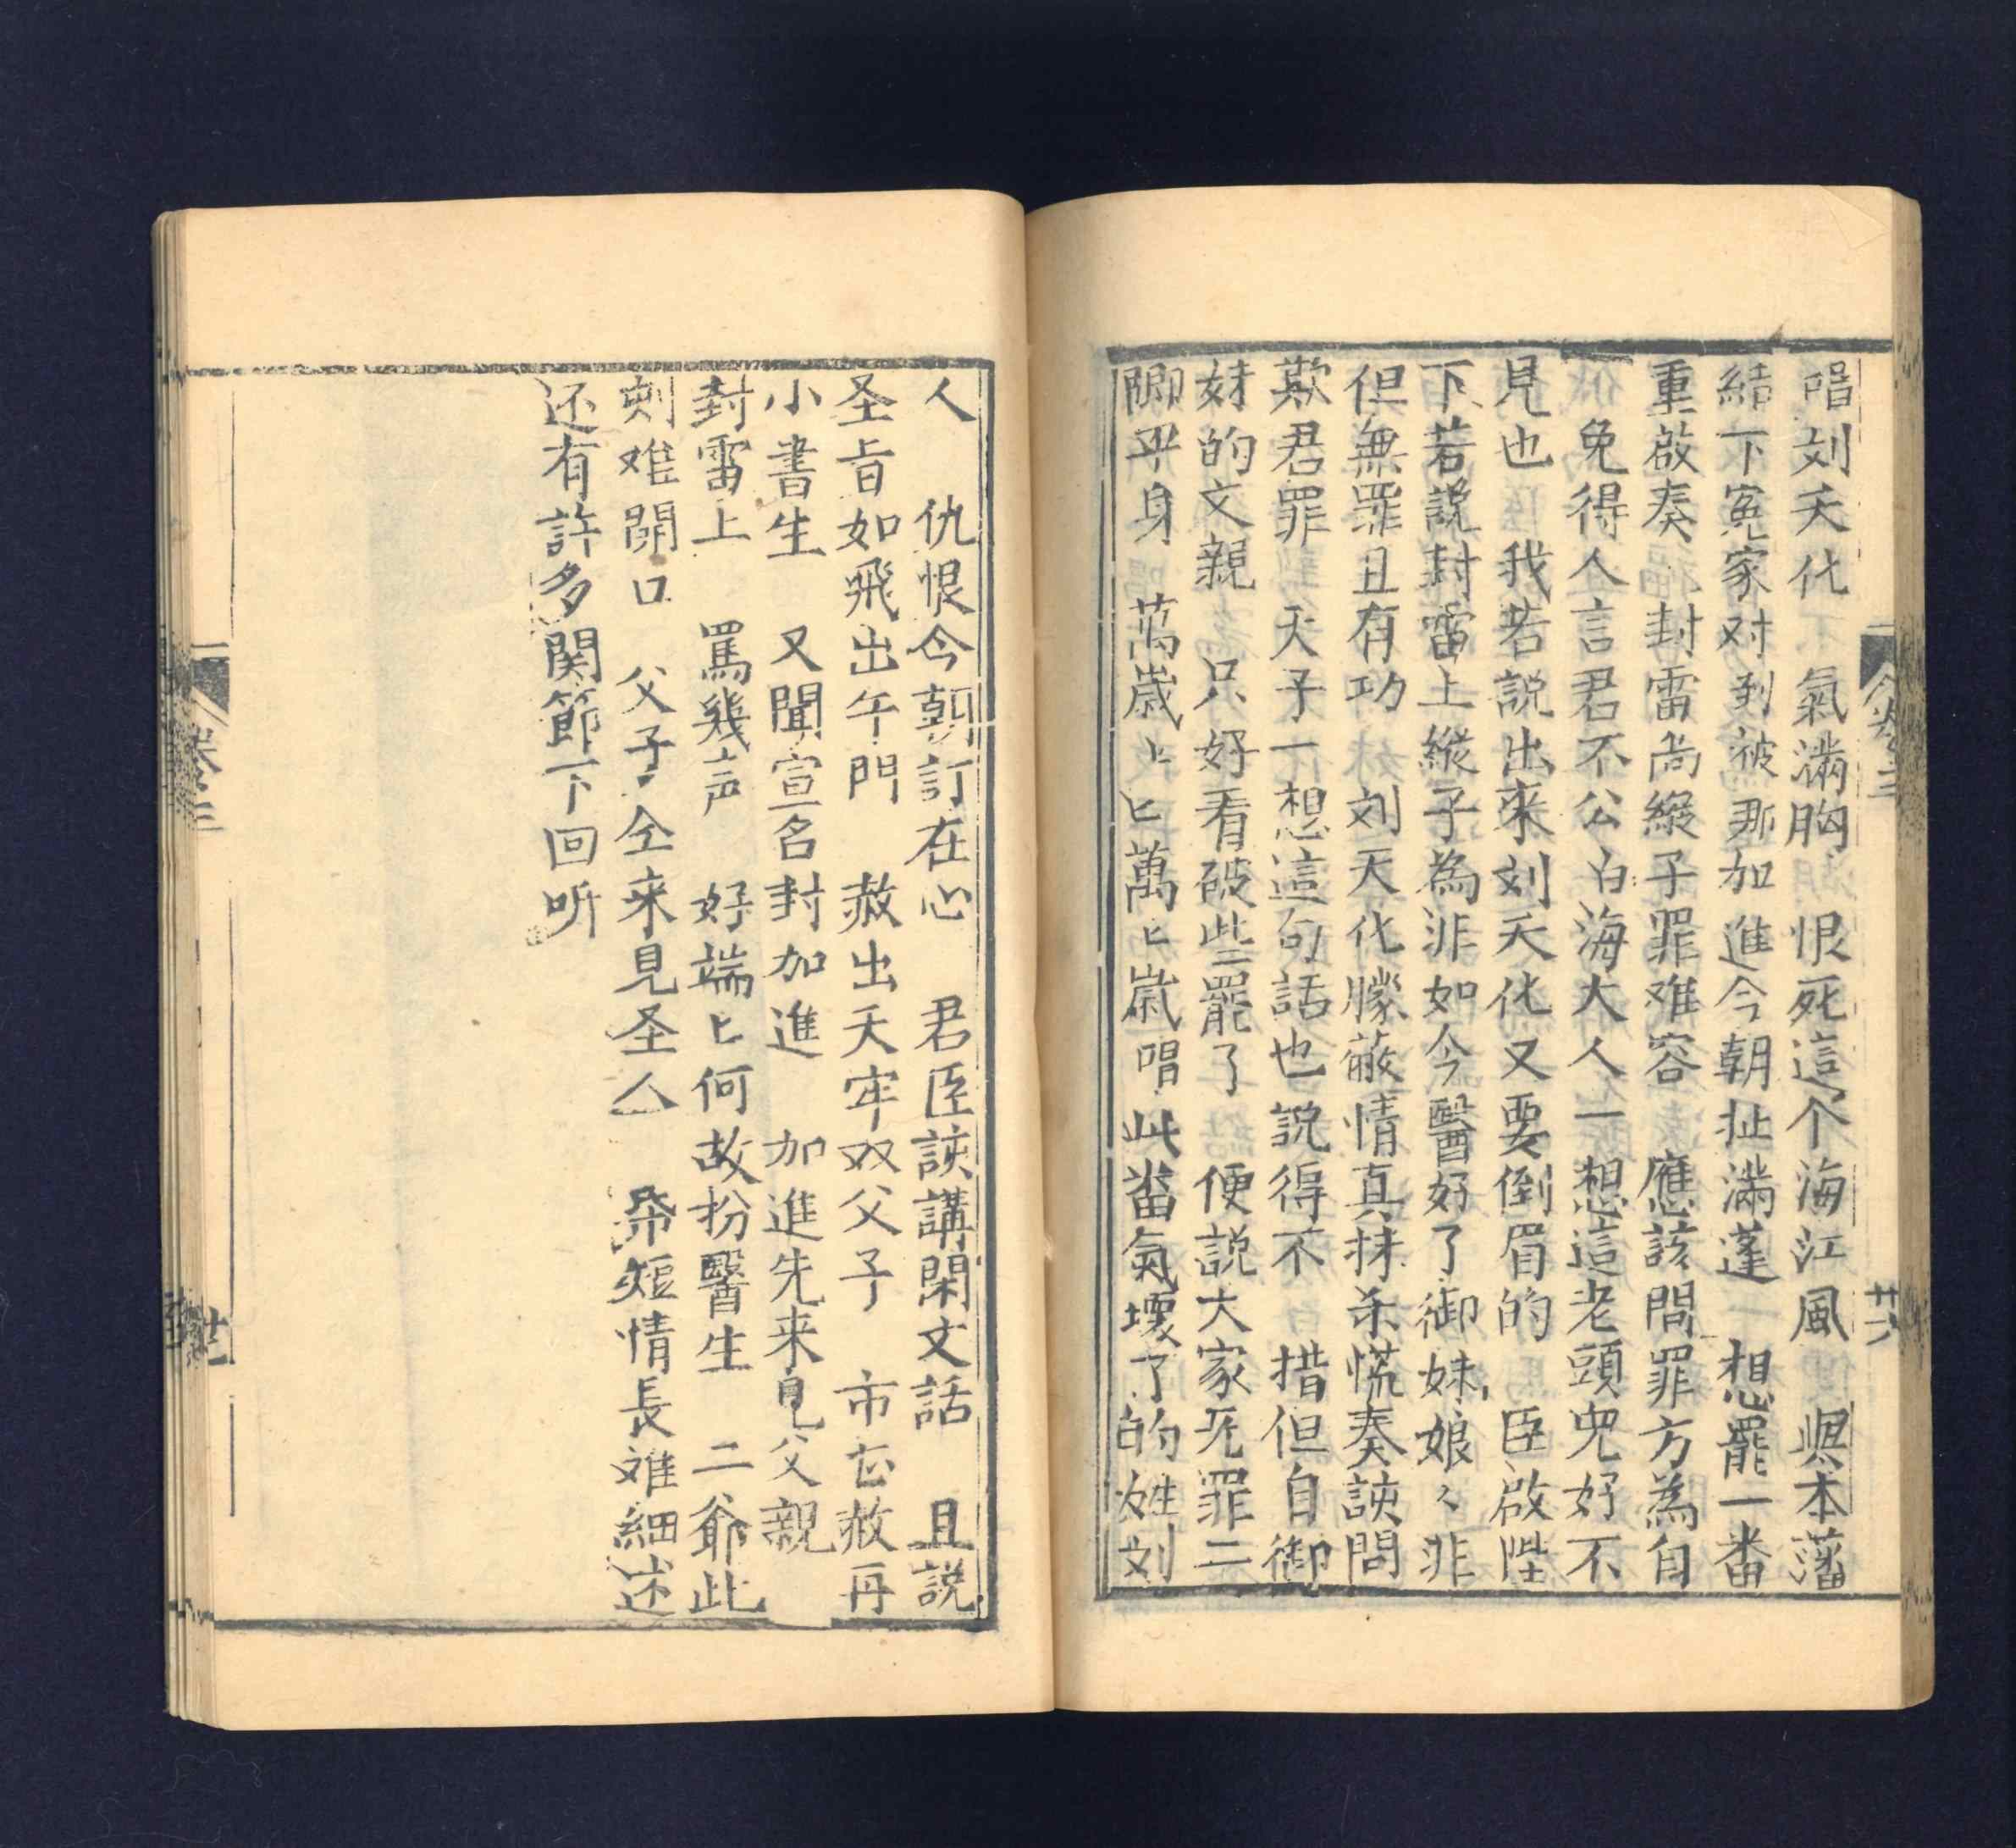 唱刘天化 氣满胸 恨死這个海江風 與本藩
結下冤家对 到被那加進今朝扯满蓬 想罷一番
重啟奏 封雷尚縱子罪难容 應該問罪方為自
免得人言君不公白海大人一想這老頭兒好不
見也 我若説出來刘天化又要倒眉的 臣啟陛
下若説封雷上縱子為非如今醫好了御妹娘々非
但無罪且有功 刘天化朦蔽情真抹杀慌奏該問
欺君罪 天子一想這句話也説得不 措但自御
妹的父親 只好看破些罷了 便説大家无罪二
卿平身 萬歲ヒヒ萬ヒ歲唱此畨氣壞了的姓刘
人 仇恨今朝訂在心 君臣該講閑文話 且説
圣旨如飛出午門 赦出天牢双父子 市曹赦再
小書生 又聞宣名封加進 加進先来見父親
封雷上 罵幾声 好端ヒ何故扮醫生 二爺此
刻难開口 父子仝来見圣人 帋短情長难細述
还有許多関節下回听
卷三
廿六
卷三